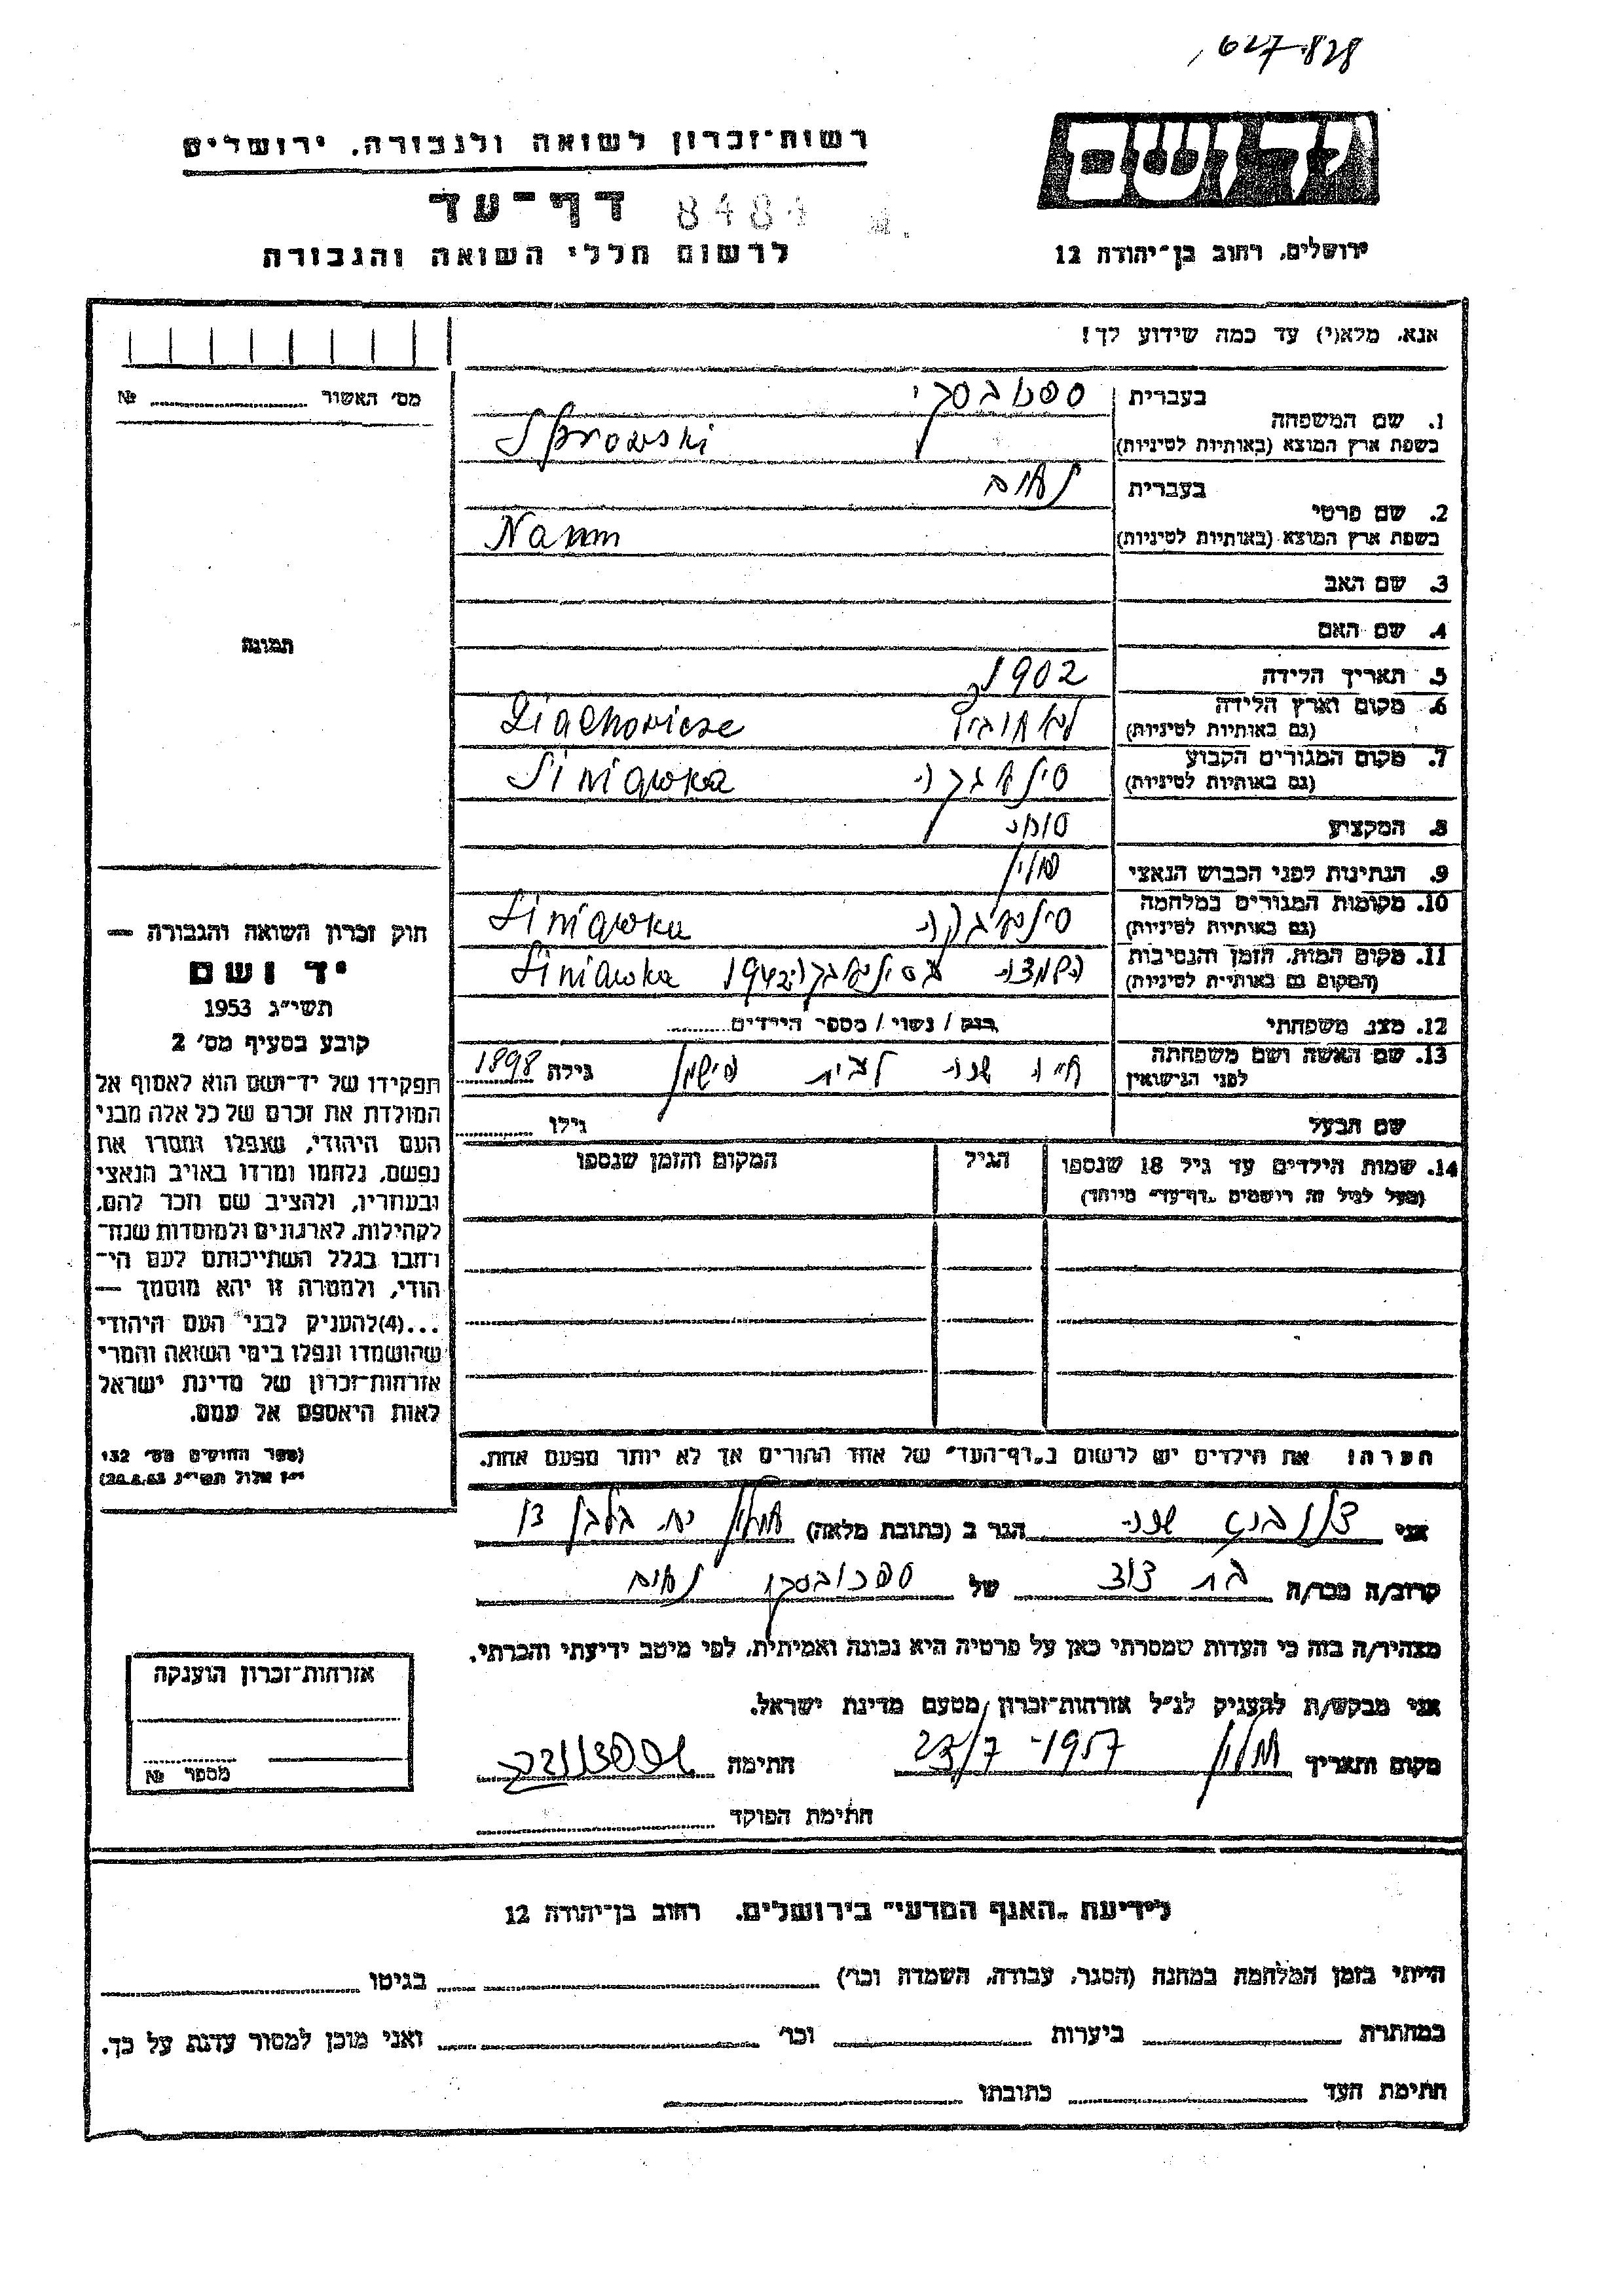 627-828
רשות־זכרון לשואה ולגבורה, ירושלים
דף־עד 8484
לרשום חללי השואה והגבורה
ירושלים, רחוב בן־יהודה 12
אנא, מלא(י) עד כמה שידוע לך!
מס׳ האשור № 
1. שם המשפחה
בעברית
בשפת ארץ המוצא (באותיות לטיניות)
2. שם פרטי
בעברית נחום
בשפת ארץ המוצא (באותיות לטיניות) Naum
3. שם האב
4. שם האם
5. תאריך הלידה 1902
6. מקום וארץ הלידה
(גם באותיות לטיניות)
7. מקום המגורים הקבוע
(גם באותיות לטיניות) Siniawka
8. המקצוע סוחר
9. הנתינות לפני הכבוש הנאצי פולין
10. מקומות המגורים במלחמה
(גם באותיות לטיניות) Siniawka
11. מקום המות, הזמן והנסיבות
(המקום גם באותיות לטיניות) 1942 Siniawka
12. מצב משפחתי רווק / נשוי / מספר הילדים
13. שם האשה ושם משפחתה
לפני הנישואין לבית פישמן גילה 1898
שם הבעל גילו
14. שמות הילדים עד גיל 18 שנספו
(מעל לגיל זה רושמים „דף־עד״ מיוחד)
הגיל
המקום והזמן שנספו
הערה! את הילדים יש לרשום ב„דף־העד״ של אחד ההורים אך לא יותר מפעם אחת.
תמונה
חוק זכרון השואה והגבורה —
יד ושם
תשי״ג 1953
קובע בסעיף מס׳ 2
תפקידו של יד־ושם הוא לאסוף אל
המולדת את זכרם של כל אלה מבני
העם היהודי, שנפלו ומסרו את
נפשם, נלחמו ומרדו באויב הנאצי
ובעוזריו, ולהציב שם וזכר להם,
לקהילות, לארגונים ולמוסדות שנח־
רבו בגלל השתייכותם לעם הי־
הודי, ולמטרה זו יהא מוסמך —
...(4)להעניק לבני העם היהודי
שהושמדו ונפלו בימי השואה והמרי
אזרחות־זכרון של מדינת ישראל
לאות היאספם אל עמם.
(ספר החוקים מס׳ 132
אני הגר ב (כתובת מלאה) חולון
קרוב/ה מכר/ה בת דוד של נחום
מצהיר/ה בזה כי העדות שמסרתי כאן על פרטיה היא נכונה ואמיתית, לפי מיטב ידיעתי והכרתי.
אני מבקש/ת להעניק לנ״ל אזרחות־זכרון מטעם מדינת ישראל.
מקום ותאריך חולון 23/7 - 1957 חתימה
חתימת הפוקד
אזרחות־זכרון הוענקה
מספר №
לידיעת „האגף המדעי״ בירושלים, רחוב בן־יהודה 12
הייתי בזמן המלחמה במחנה (הסגר, עבודה, השמדה וכו׳) בגיטו
במחתרת ביערות וכו׳ ואני מוכן למסור עדות על כך.
חתימת העד כתובתו